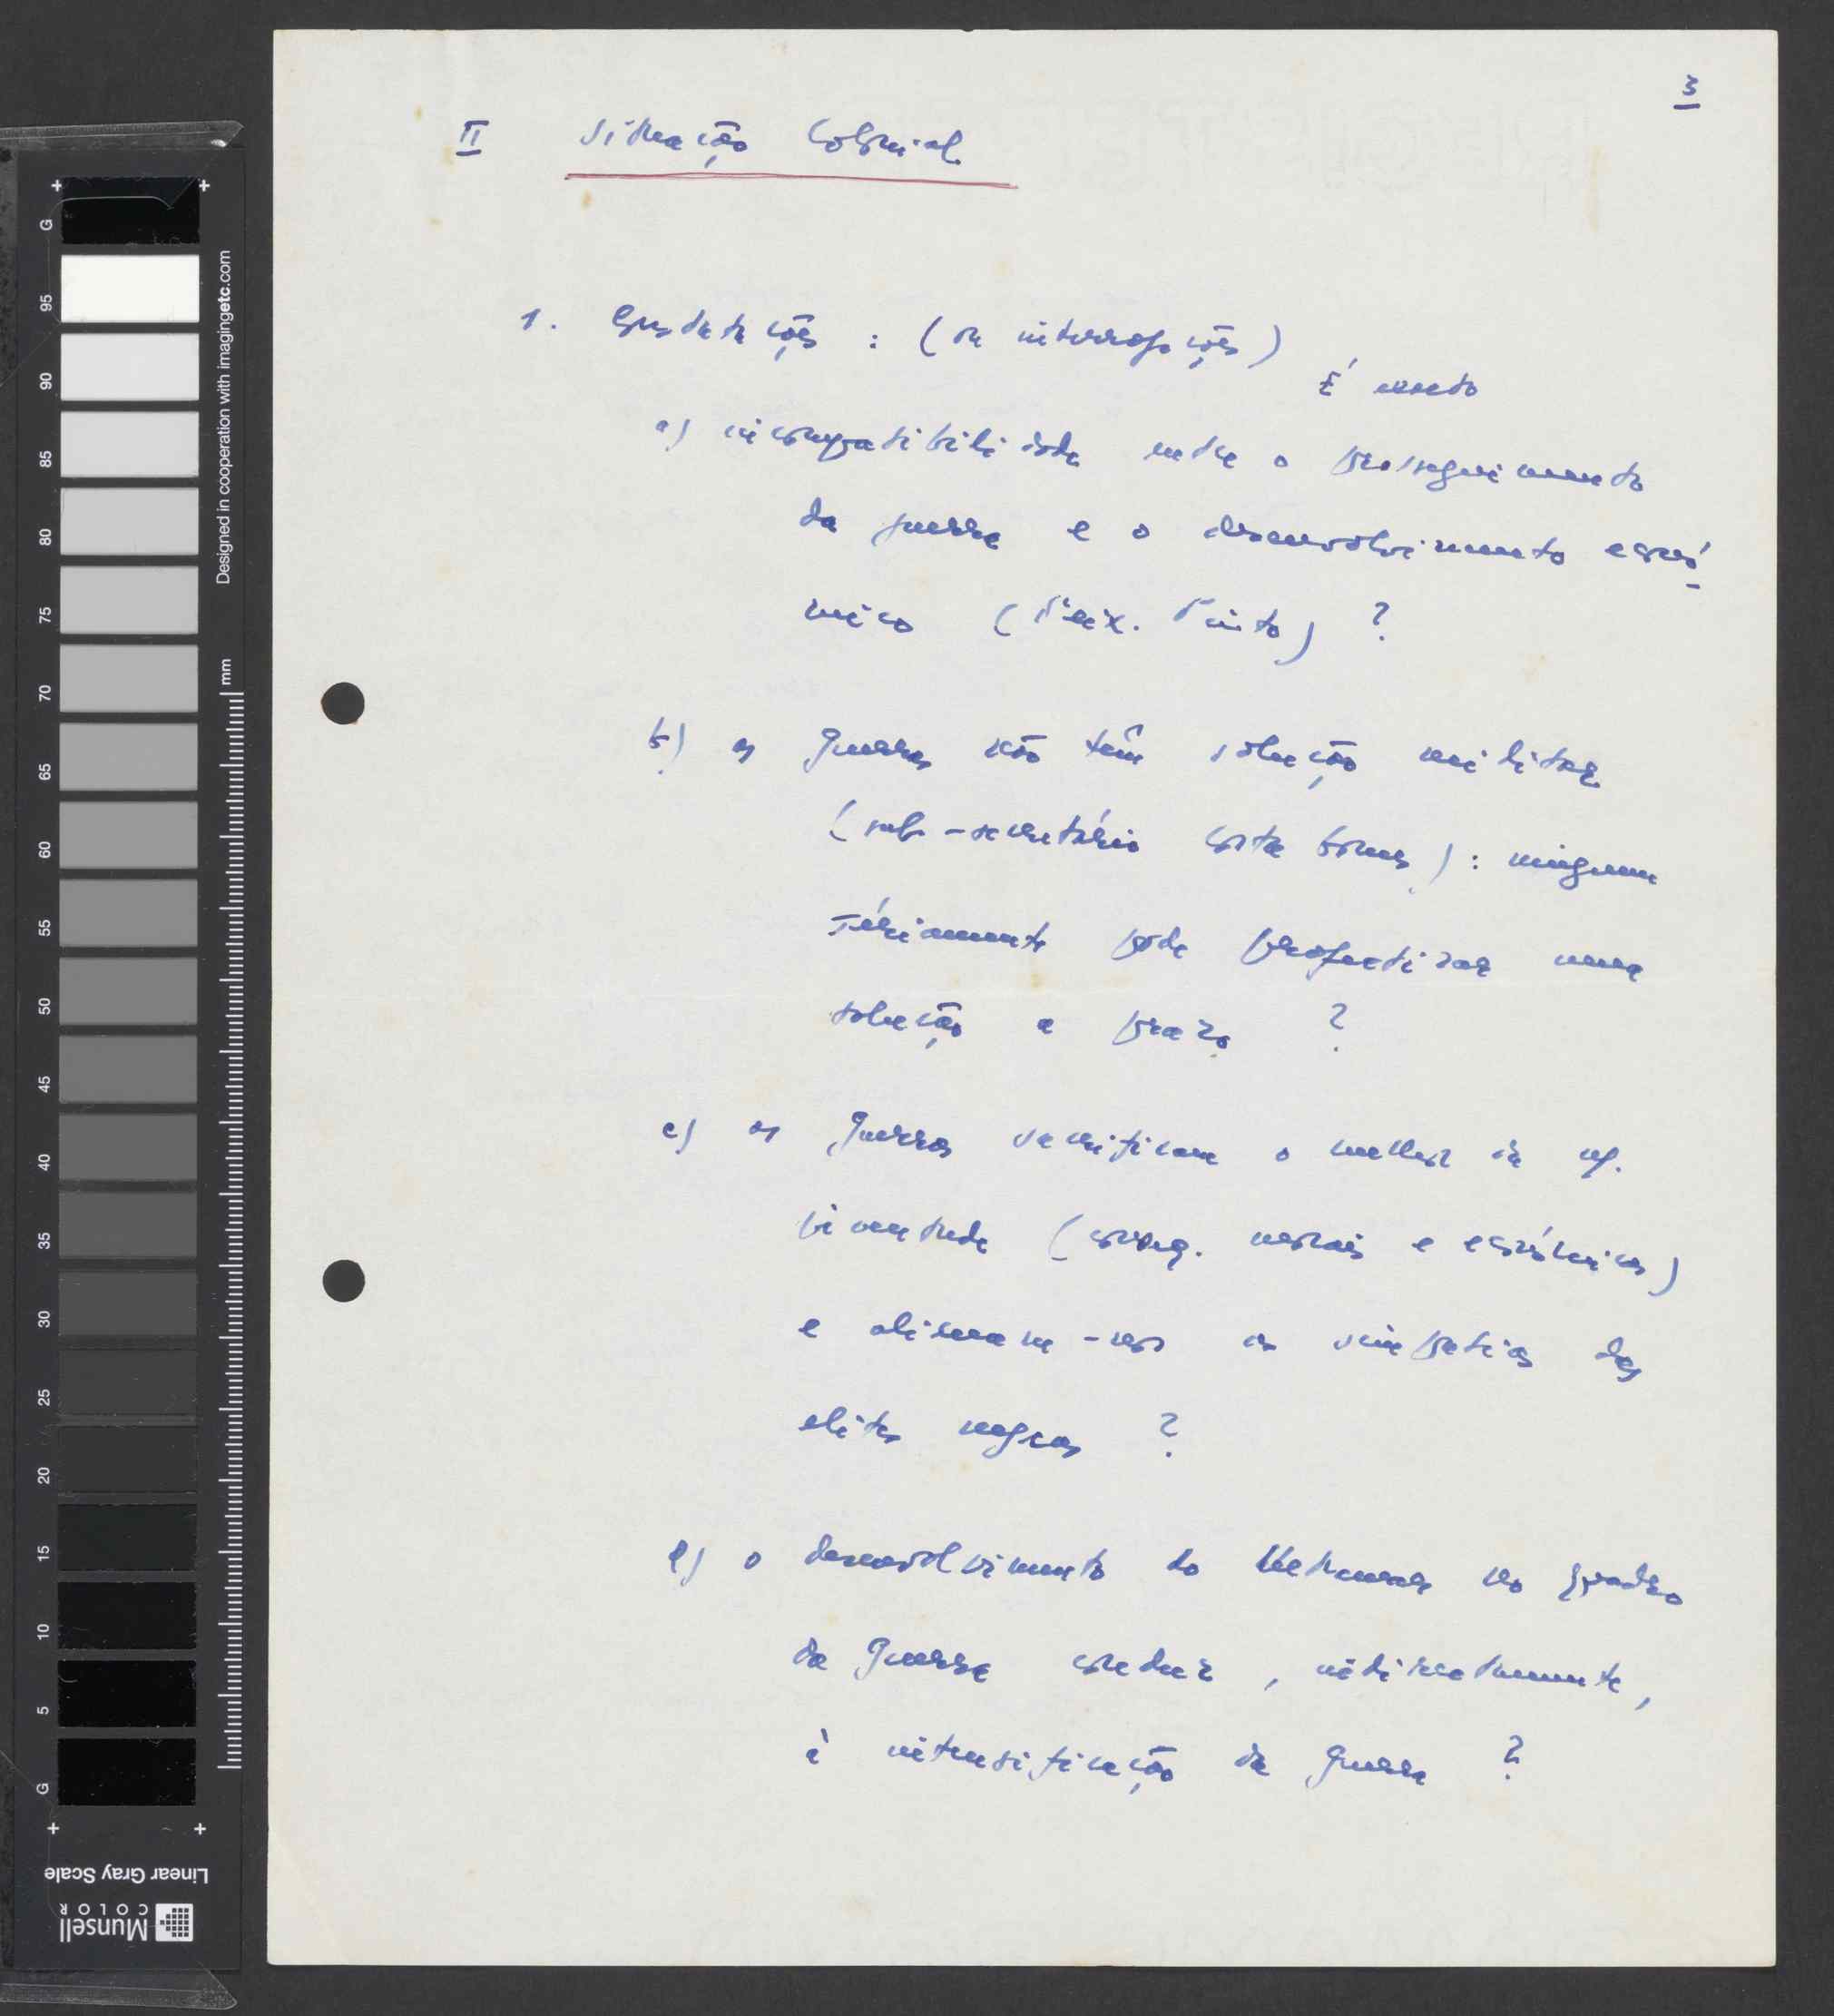 3
II Situação Colonial
1. Constatações : (ou interrogações)
É
a) incompatibilidade entre o prosseguimento
da guerra e o desenvolvimento econó-
mico (Teix. Pinto) ?
b) as guerras não têm solução militar
(sub-secretário Costa Gomes) : ninguem
sériamente pode profetizar uma
solução a prazo ?
c) as guerras sacrificam o melhor da
juventude (conseq. morais e económicas)
e alienam-nos as simpatias das
elites negras ?
e) o desenvolvimento do Ultramar no quadro
da guerra conduz, indirectamente,
à intensificação da guerra ?
G
95
90
85
80
75
70
65
60
55
50
45
40
35
30
25
20
15
10
5
G
Designed in cooperation with imagingetc.com
mm
Linear Gray Scale
Munsell
COLOR